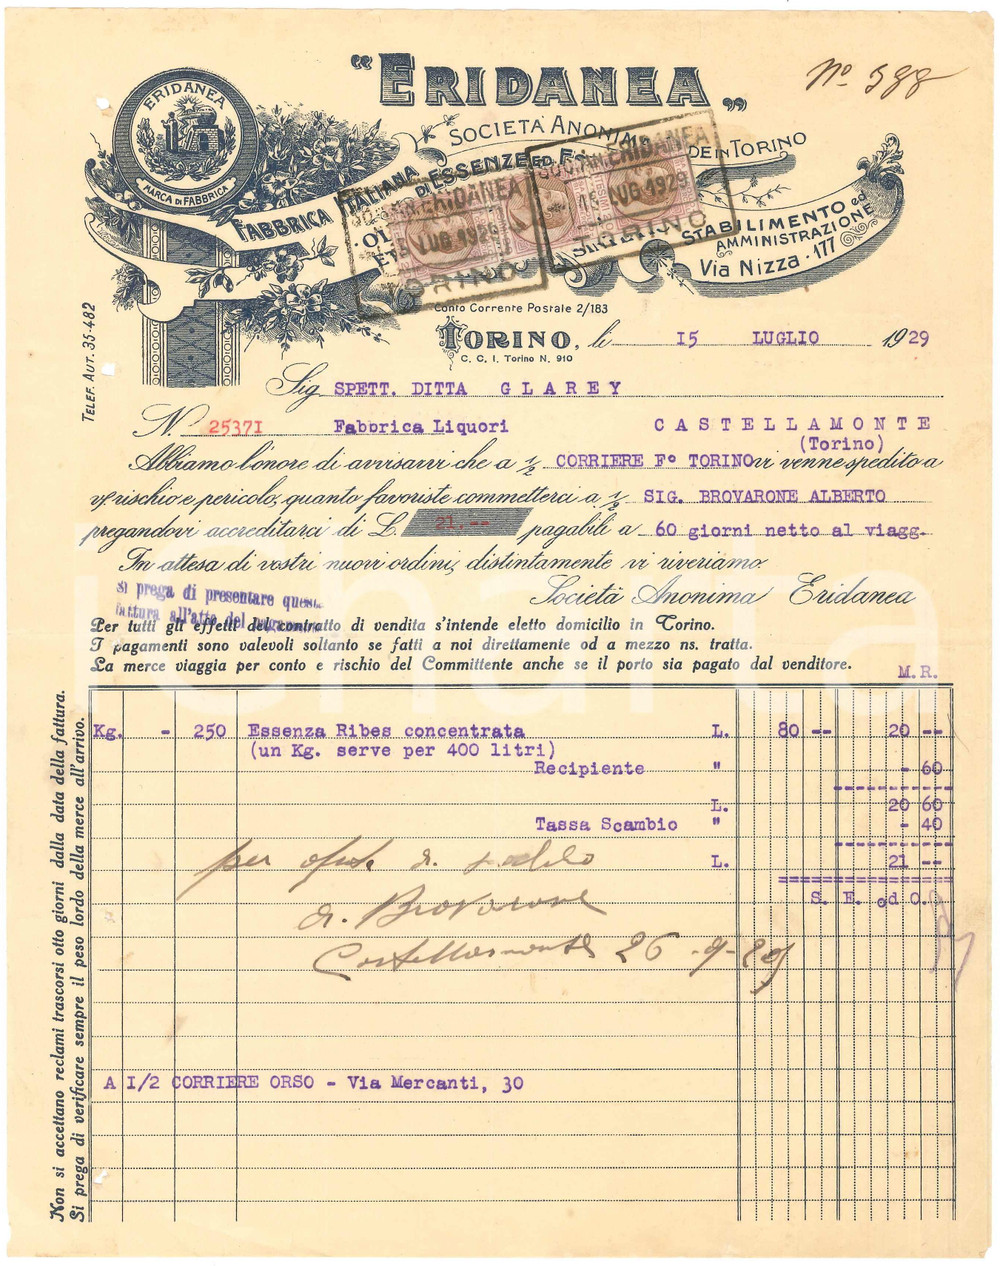 "ERIDANEA"
Nº 588
ERIDANEA
MARCA DI FABBRICA
SOCIETÀ ANONIMA
SEDE IN TORINO
FABBRICA ITALIANA DI ESSENZE ED
SOC. AN. ERIDANEA
15 LUG 1929
TORINO
SOC. AN. ERIDANEA
15 LUG 1929
TORINO
STABILIMENTO ED
AMMINISTRAZIONE
Via Nizza - 177
Conto Corrente Postale 2/183
TELEF. AUT. 35-482
TORINO, li 15 LUGLIO 1929
C. C. I. Torino N. 910
Sig SPETT. DITTA G L A R E Y
N. 25371 Fabbrica Liquori C A S T E L L A M O N T E
(Torino)
Abbiamo l'onore di avvisarvi che a ½ CORRIERE Fº TORINO vi venne spedito a
vs. rischio e pericolo, quanto favoriste commetterci a ½ SIG. BROVARONE ALBERTO
pregandovi accreditarci di L. 21.-- pagabili a 60 giorni netto al viagg.
In attesa di vostri nuovi ordini, distintamente vi riveriamo.
Società Anonima Eridanea
Si prega di presentare questa
fattura all'atto del pagamento
Per tutti gli effetti del contratto di vendita s'intende eletto domicilio in Torino.
I pagamenti sono valevoli soltanto se fatti a noi direttamente od a mezzo ns. tratta.
La merce viaggia per conto e rischio del Committente anche se il porto sia pagato dal venditore.
M.R.
Kg. - 250 Essenza Ribes concentrata L. 80 -- 20 --
(un Kg. serve per 400 litri)
Recipiente " - 60
L. 20 60
Tassa Scambio " - 40
L. 21 --
S. E. od O.
per
a. Brovarone
Castellamonte 26-9-29
A I/2 CORRIERE ORSO - Via Mercanti, 30
Non si accettano reclami trascorsi otto giorni dalla data della fattura.
Si prega di verificare sempre il peso lordo della merce all'arrivo.